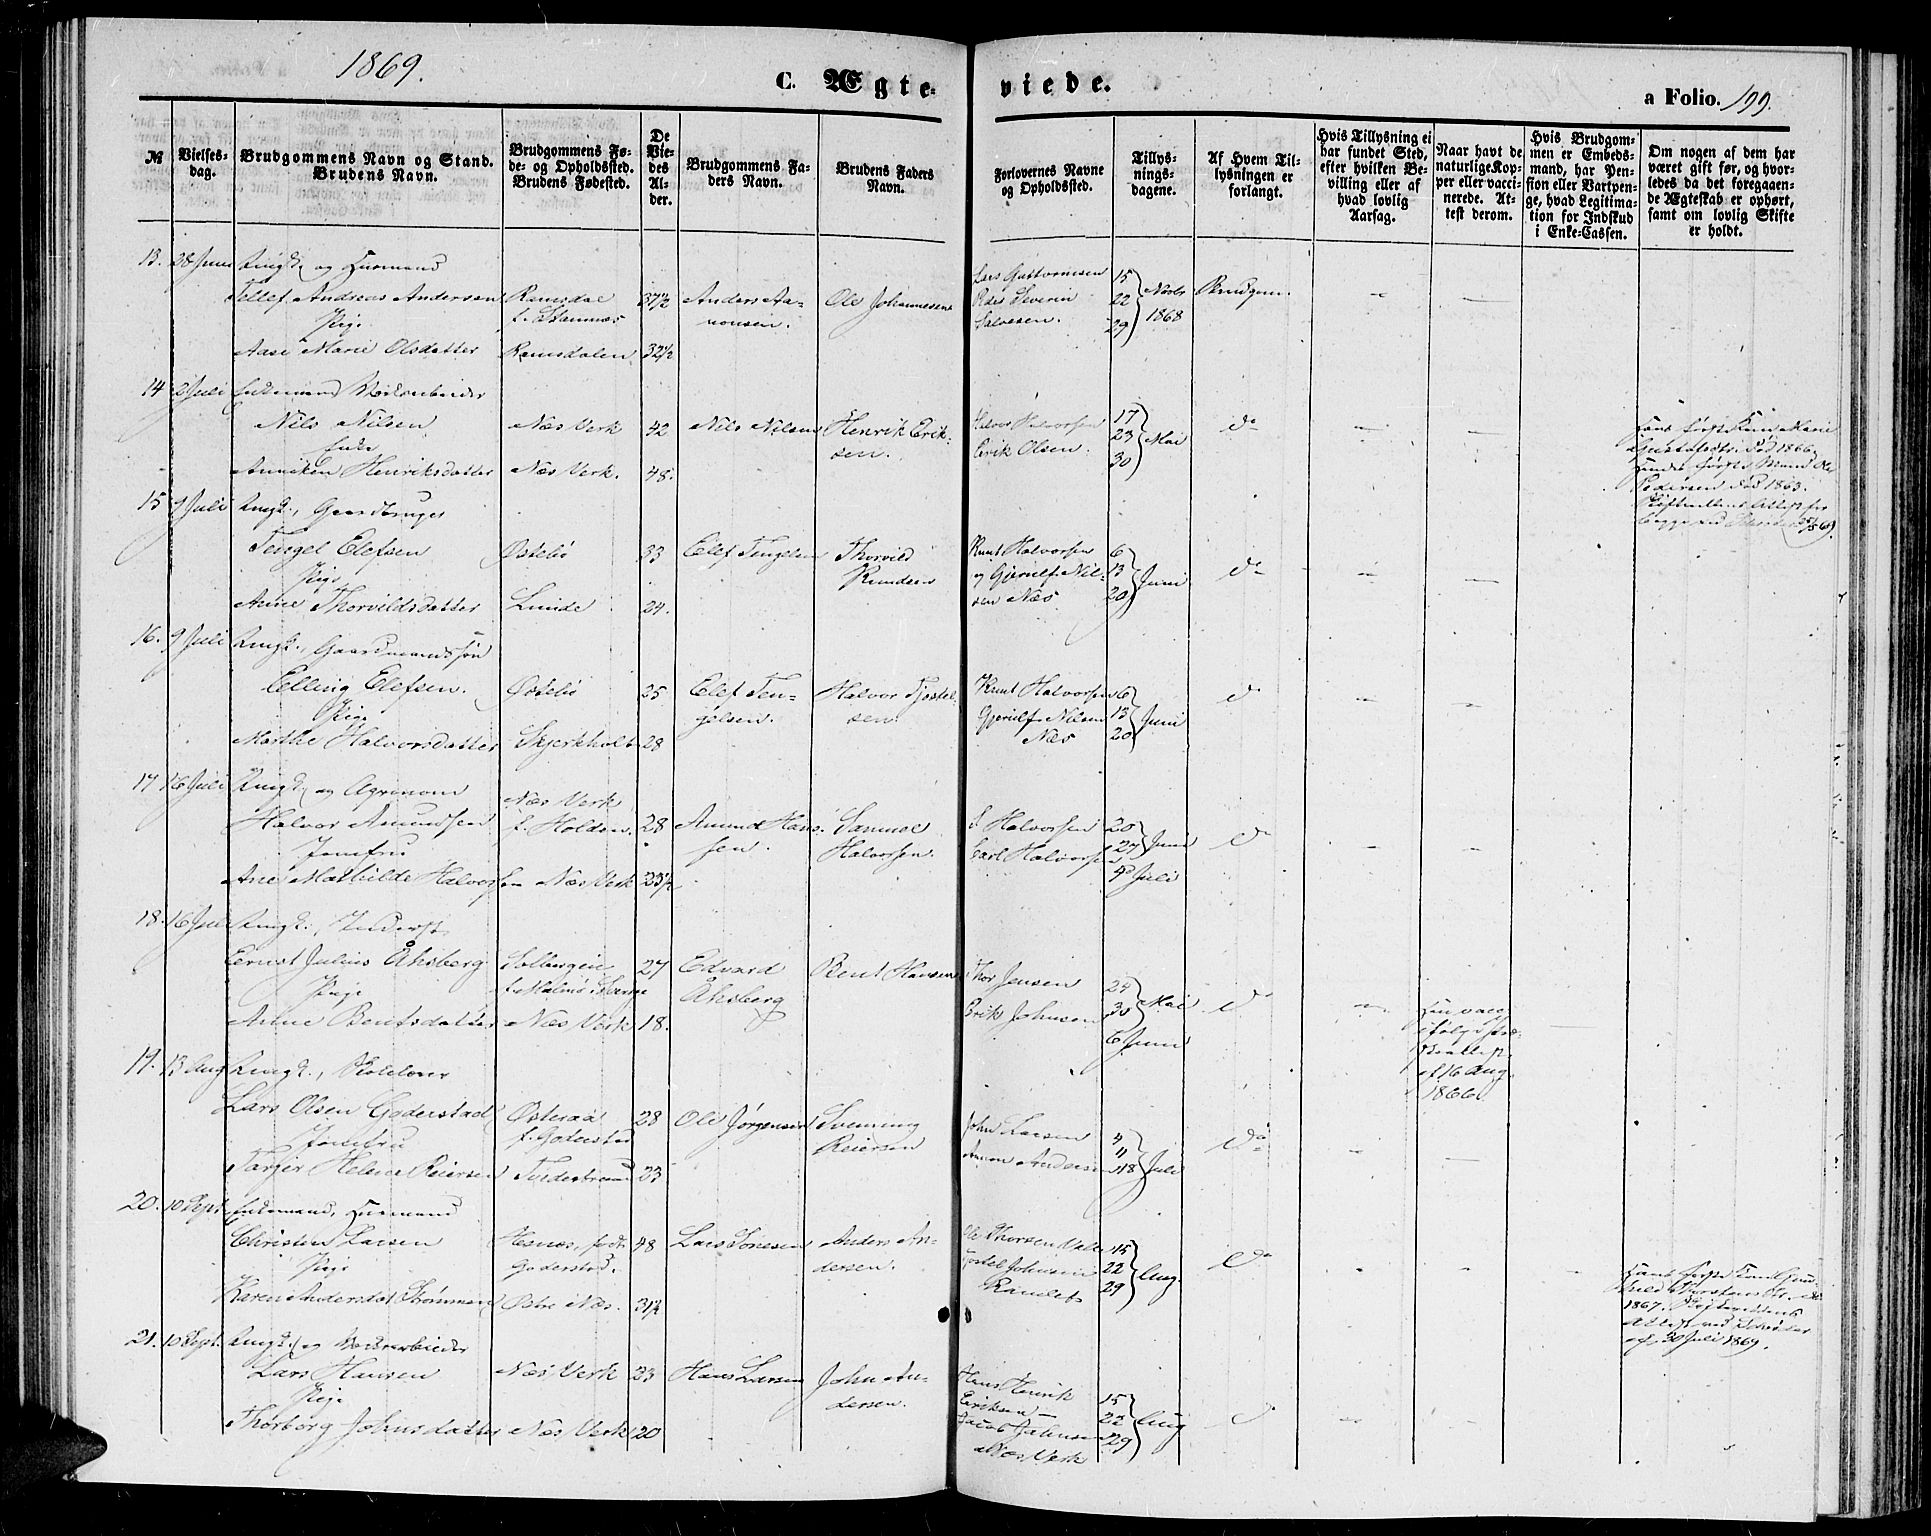 1869.
C. Ægteviede.
a Folio. 199.
№
Vielses-dag.
Brudgommens Navn og Stand. Brudens Navn.
Brudgommens Føde- og Opholdssted. Brudens Fødested.
De Viedes Alder.
Brudgommens Faders Navn.
Brudens Faders Navn.
Forlovernes Navne og Opholdssted.
Tillysningsdagene.
Af Hvem Tillysningen er forlangt.
Hvis Tillysning ei har fundet Sted, efter hvilken Bevilling eller af hvad lovlig Aarsag.
Naar havt de naturlige Kopper eller vaccinerede. Attest derom.
Hvis Brudgommen er Embedsmand, har Pension eller Vartpenge, hvad Legitimation for Indskud i Enke-Cassen.
Om nogen af dem har været gift før, og hvorledes da det foregaaende Ægteskab er ophørt, samt om lovlig Skifte er holdt.
13. 28 Juni Ungk. og Huusmand
Tellef Andreas Andersen Ramsdal 37½ Anders Aanonsen. Ole Johannesens
Pige f. Stamnæs
Aase Marie Olsdatter Ramsdalen 32½
Severin Salvesen. 15 22 29 Novbr 1868 Brudgom.
14 2 Juli Enkemand
Nils Nilsen Næs Verk 42 Nils Nilsen Henrik Eriksen.
Enke
Anniken Henriksdatter Næs Verk. 48.
Halvor Halvorsen Erik Olsen. 17 23 30 Mai do
Hans første Kone Marie Gustafsdtr. død 1866,
Hendes første Mand Ole Pedersen død 1863.
15 9 Juli Ungk., Gaardbruger
Tengel Elefsen Østebø 33 Elef Tengelsen Thorvild Knudsen
Pige
Anne Thorvildsdatter Lunde 24.
Knut Halvorsen og Gjerulf Nilsen Næs 6 13 20 Juni do
16. 9 Juli Ungk., Gaardmandssøn
Elling Elefsen. Østebø 25 Elef Tengelsen. Halvor Tjostelsen
Pige
Marthe Halvorsdatter Skjerkholt 28
Knut Halvorsen Gjerulf Nilsen Næs 6 13 20 Juni do
17 16 Juli Ungk. og Agronom
Halvor Amundsen Næs Verk f. Holden. 28 Amund Hansen. Samuel Halvorsen.
Jomfru
Ane Mathilde Halvorsen Næs Verk 23½
S Halvorsen Carl Halvorsen 20 27 Juni 4 Juli do
18. 16 Juli Ungk., Inderst
Ernst Julius Åhsberg Solbergin 27 Edvard Åhsberg Bent Hansen
Pige f. Malmø i Sverige
Anne Bentsdatter Næs Verk 18.
Thor Jensen Erik Johnsen 24 30 Mai 6 Juni do
af 16 Aug 1866
19. 13 Aug Ungk., Skolelærer
Lars Olsen Goderstad Østeraa f. Goderstad 28 Ole Jørgensen Svenning Reiersen
Jomfru
Tarjer Helene Reiersen Tvedestrand 23
John Larsen Aanon Andersen 4 11 18 Juli do
20. 10 Sept. Enkemand, Huusmand
Christen Larsen Hesnæs, født Goderstad. 48 Lars Tønesen Anders Andersen.
Pige
Karen Andersdat. Strømmen Østre Næs. 31½
Ole Thorsen 15 22 29 Aug. do
1867.
Attest
af 30 Juli 1869.
21. 10 Sept. Ungk. og Værksarbeider
Lars Hansen Næs Verk 23 Hans Larsen John Andersen.
Pige
Thorborg Johnsdatter Næs Verk 20
Hans Henrik Eriksen - Jacob Johnsen Næs Verk 15 22 29 Aug do